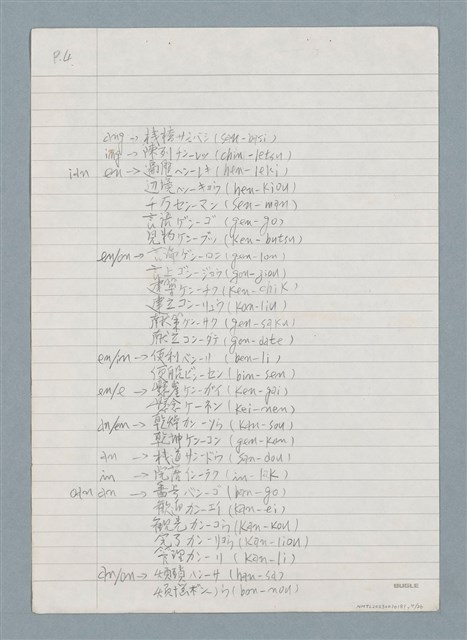 P.4
ang → 桟橋 サンバシ (san-basi)
ing → 陳列 チン-レツ (chin-letsu)
ian en → 遍歴 ヘン-レキ (hen-leki)
辺境 ヘン-キョウ (hen-kiou)
千万 セン-マン (sen-man)
言語 ゲン-ゴ (gen-go)
見物 ケン-ブツ (ken-butsu)
en/on → 言論 ゲン-ロン (gen-lon)
言上 ゴン-ジョウ (gon-jiou)
建築 ケン-チク (ken-chik
建立 コン-リュウ (kon-liu)
献策 ケン-サク (gen-saku)
献立 コン-ダテ (gon-date)
en/in → 便利 ベン-リ (ben-li)
便船 ビン-セン (bin-sen)
en/e → 懸崖 ケン-ガイ (ken-gai)
懸念 ケ-ネン (kei-nen)
an/en → 乾燥 カン-ソウ (kan-sou)
乾坤 ケン-コン (gen-kon)
an → 桟道 サン-ドウ (san-dou)
in → 院宅 イン-テク (in-tak
oan an → 番号 バン-ゴ (ban-go)
カン-エイ (kan-ei)
観光 カン-コウ (kan-kou)
完了 カン-リョウ (kan-liou)
管理 カン-リ (kan-li)
an/on → 煩瑣 ハン-サ (han-sa)
煩悩 ボン-ノウ (bon-nou)